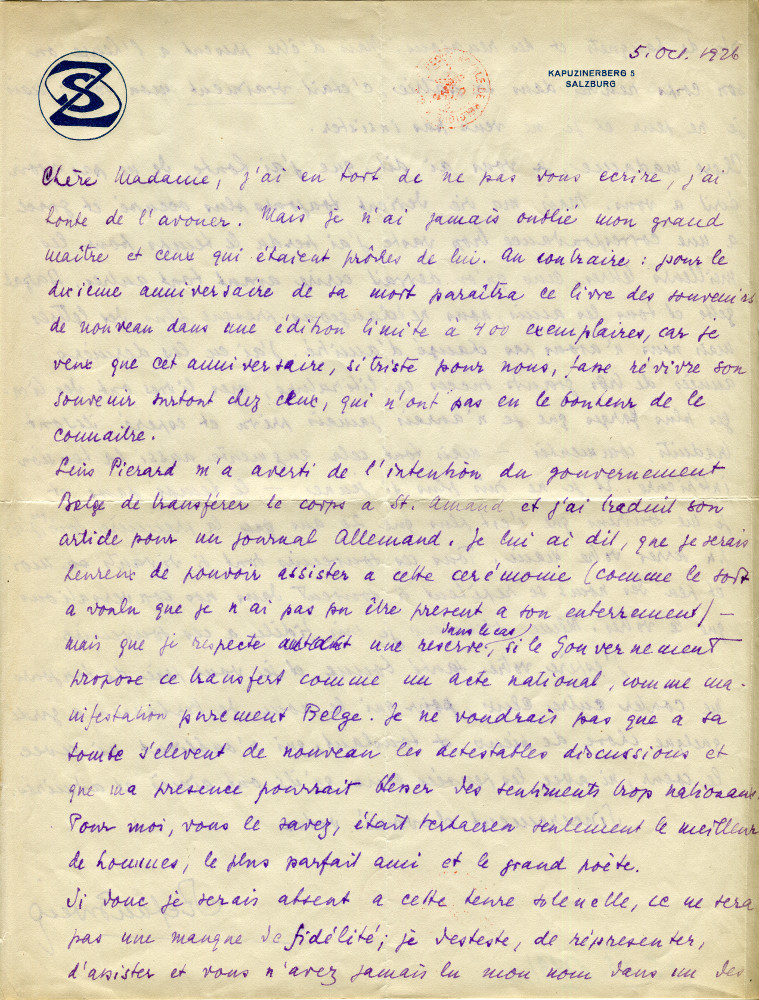 5. Oct. 1926
SZ
KAPUZINERBERG 5
SALZBURG
Chère Madame, j'ai eu tort de ne pas vous ecrire, j'ai
honte de l'avouer. Mais je n'ai jamais oublié mon grand
maître et ceux qui étaient prôdes de lui. Au contraire : pour le
dixieme anniversaire de sa mort paraîtra ce livre des souvenirs
de nouveau dans une édition limite a 400 exemplaires, car je
veux que cet anniversaire, si triste pour nous, fasse révivre son
souvenir surtout chez ceux, qui n'ont pas eu le bonheur de le
connaitre.
Luis Pierard m'a averti de l'intention du gouvernement
Belge de transférer le corps a St. Amand et j'ai traduit son
article pour un journal Allemand. Je lui ai dit, que je serais
heureux de pouvoir assister a cette cerémonie (comme le sort
a voulu que je n'ai pas pu être present a son enterrement) –
mais que je respecte une reserve, dans le cas, si le Gouvernement
propose ce transfert comme un acte national, comme ma-
nifestation purement Belge. Je ne voudrais pas que a sa
tombe s'elevent de nouveau les detestables discussions et
que ma présence pourrait blesser des sentiments trop nationaux.
Pour moi, vous le savez, était Verhaeren seulement le meilleur
de hommes, le plus parfait ami et le grand poète.
Si donc je serais absent a cette heure solenelle, ce ne sera
pas une manque de fidélité; je desteste, de répresenter,
d'assister et vous n'avez jamais lu mon nom dans un des